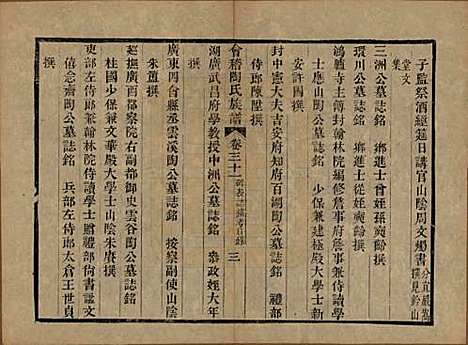 子監祭酒經筵日講官山陰周文燭書 分宜嚴嵩撰見鈐山
堂文集
三洲公墓誌銘 鄉進士曾姪孫奭齡撰
環川公墓誌銘 鄉進士奭齡撰
鴻臚寺主簿封翰林院編修詹事府詹事兼侍讀學
士應山陶公墓誌銘 少保兼建極殿大學士新
安許國撰
封中憲大夫吉安府知府百湖陶公墓誌銘 禮部
侍郎陳陞撰
會稽陶氏族譜 卷三十一 三
湖廣武昌府學教授中洲公墓誌銘 參政姪大年
撰
廣東四會縣丞雲溪陶公墓誌銘 按察副使山陰
朱篁撰
巡撫廣西都察院右副都御史雲谷陶公墓誌銘
柱國少保兼文華殿大學士山陰朱賡撰
吏部左侍郎兼翰林院侍讀學士贈禮部尚書諡文
僖念齋陶公墓誌銘 兵部左侍郎太倉王世貞
撰